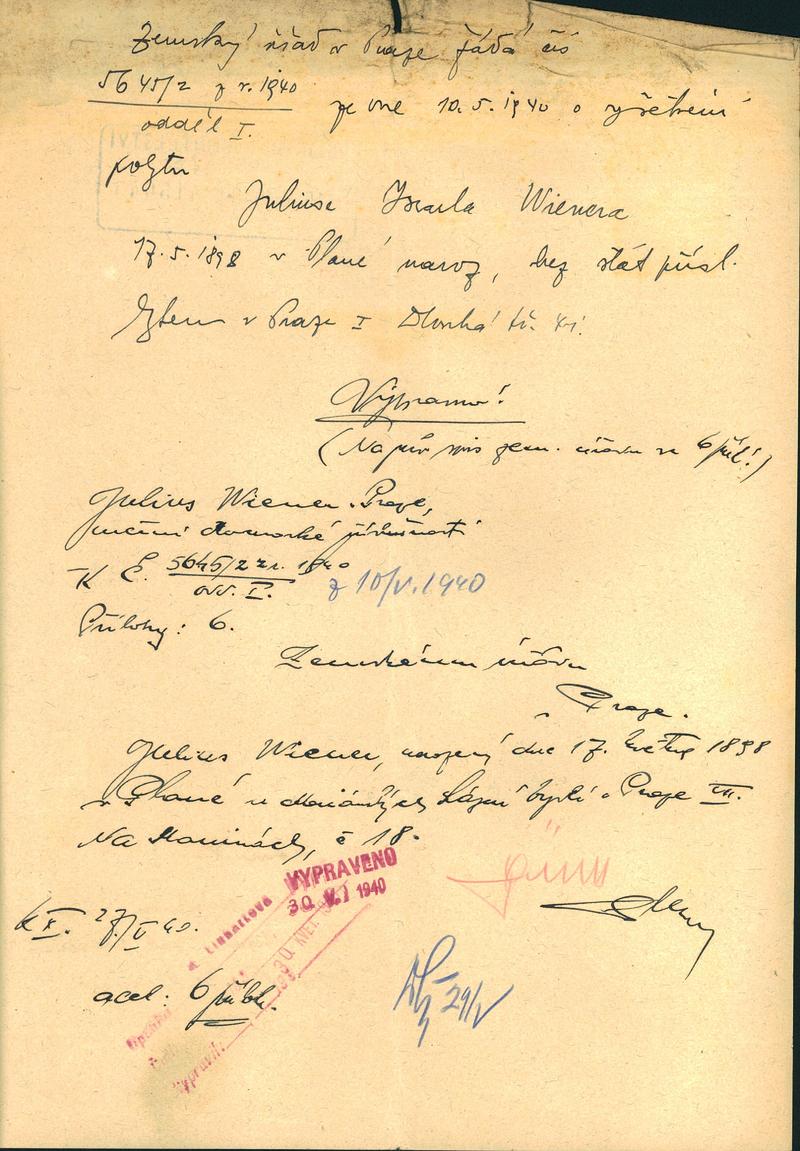 Zemský úřad v Praze žádá čís
5645/2 z r. 1940
odděl I.
ze dne 10.5.1940 o vyšetření
pobytu
Juliuse Israela Wienera
17.5.1898 v Plané naroz, bez stát přísl.
bytem v Praze I Dlouhá tř. 41.
Vypraviti!
(Na pův spis zem. úřadu se 6 příl.)
Julius Wiener Praze,
určení domovské příslušnosti
K č. 5645/2 z r. 1940
odd. I.
z 10/V.1940
Přílohy: 6.
Zemskému úřadu
Praze.
Julius Wiener, narozený dne 17. května 1898
v Plané u Mariánských Lázní bydlí v Praze VII.
Na Maninách, č 18.
VYPRAVENO
30 V. 1940
K I. 27/V 40.
30 KVĚT.
Linhartová
acel: 6 příloh.
29/V
Vypravil: